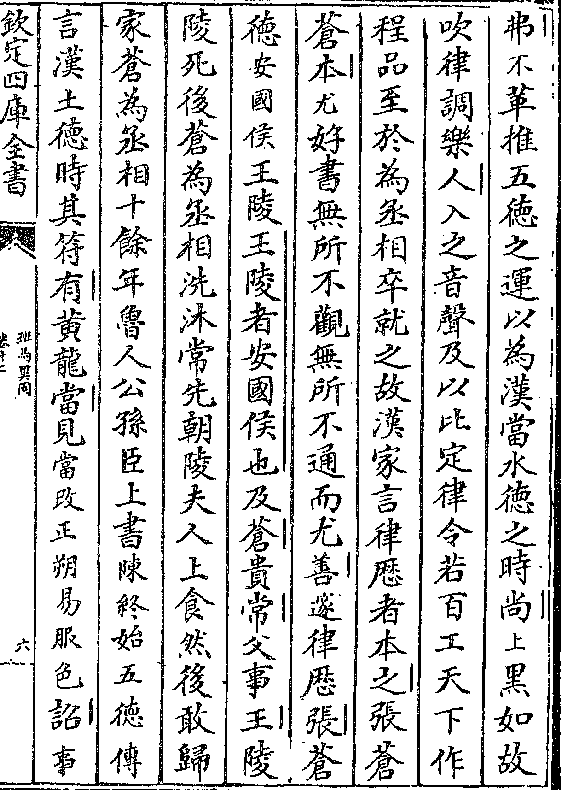 弗不革推五徳之運以為漢當水徳之時尚上黒如故
吹律調樂人入之音聲及以比定律令若百工天下作
程品至於為丞相卒就之故漢家言律厯者本之張蒼
蒼本尤好書無所不觀無所不通而尤善邃律厯張蒼
徳安國侯王陵王陵者安國侯也及蒼貴常父事王陵
陵死後蒼為丞相洗沐常先朝陵夫人上食然後敢歸
家蒼為丞相十餘年魯人公孫臣上書陳終始五徳傳
言漢土徳時其符有黄龍當見當改正朔易服色詔事
欽定四庫全書
班馬異同
六